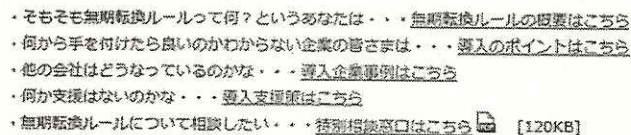 ・そもそも無期転換ルールって何？というあなたは・・・無期転換ルールの概要はこちら
・何から手を付けたら良いのかわからない企業の皆さまは・・・導入のポイントはこちら
・他の会社はどうなっているのかな・・・導入企業事例はこちら
・何か支援はないのかな・・・導入支援策はこちら
・無期転換ルールについて相談したい・・・特別相談窓口はこちら [120KB]